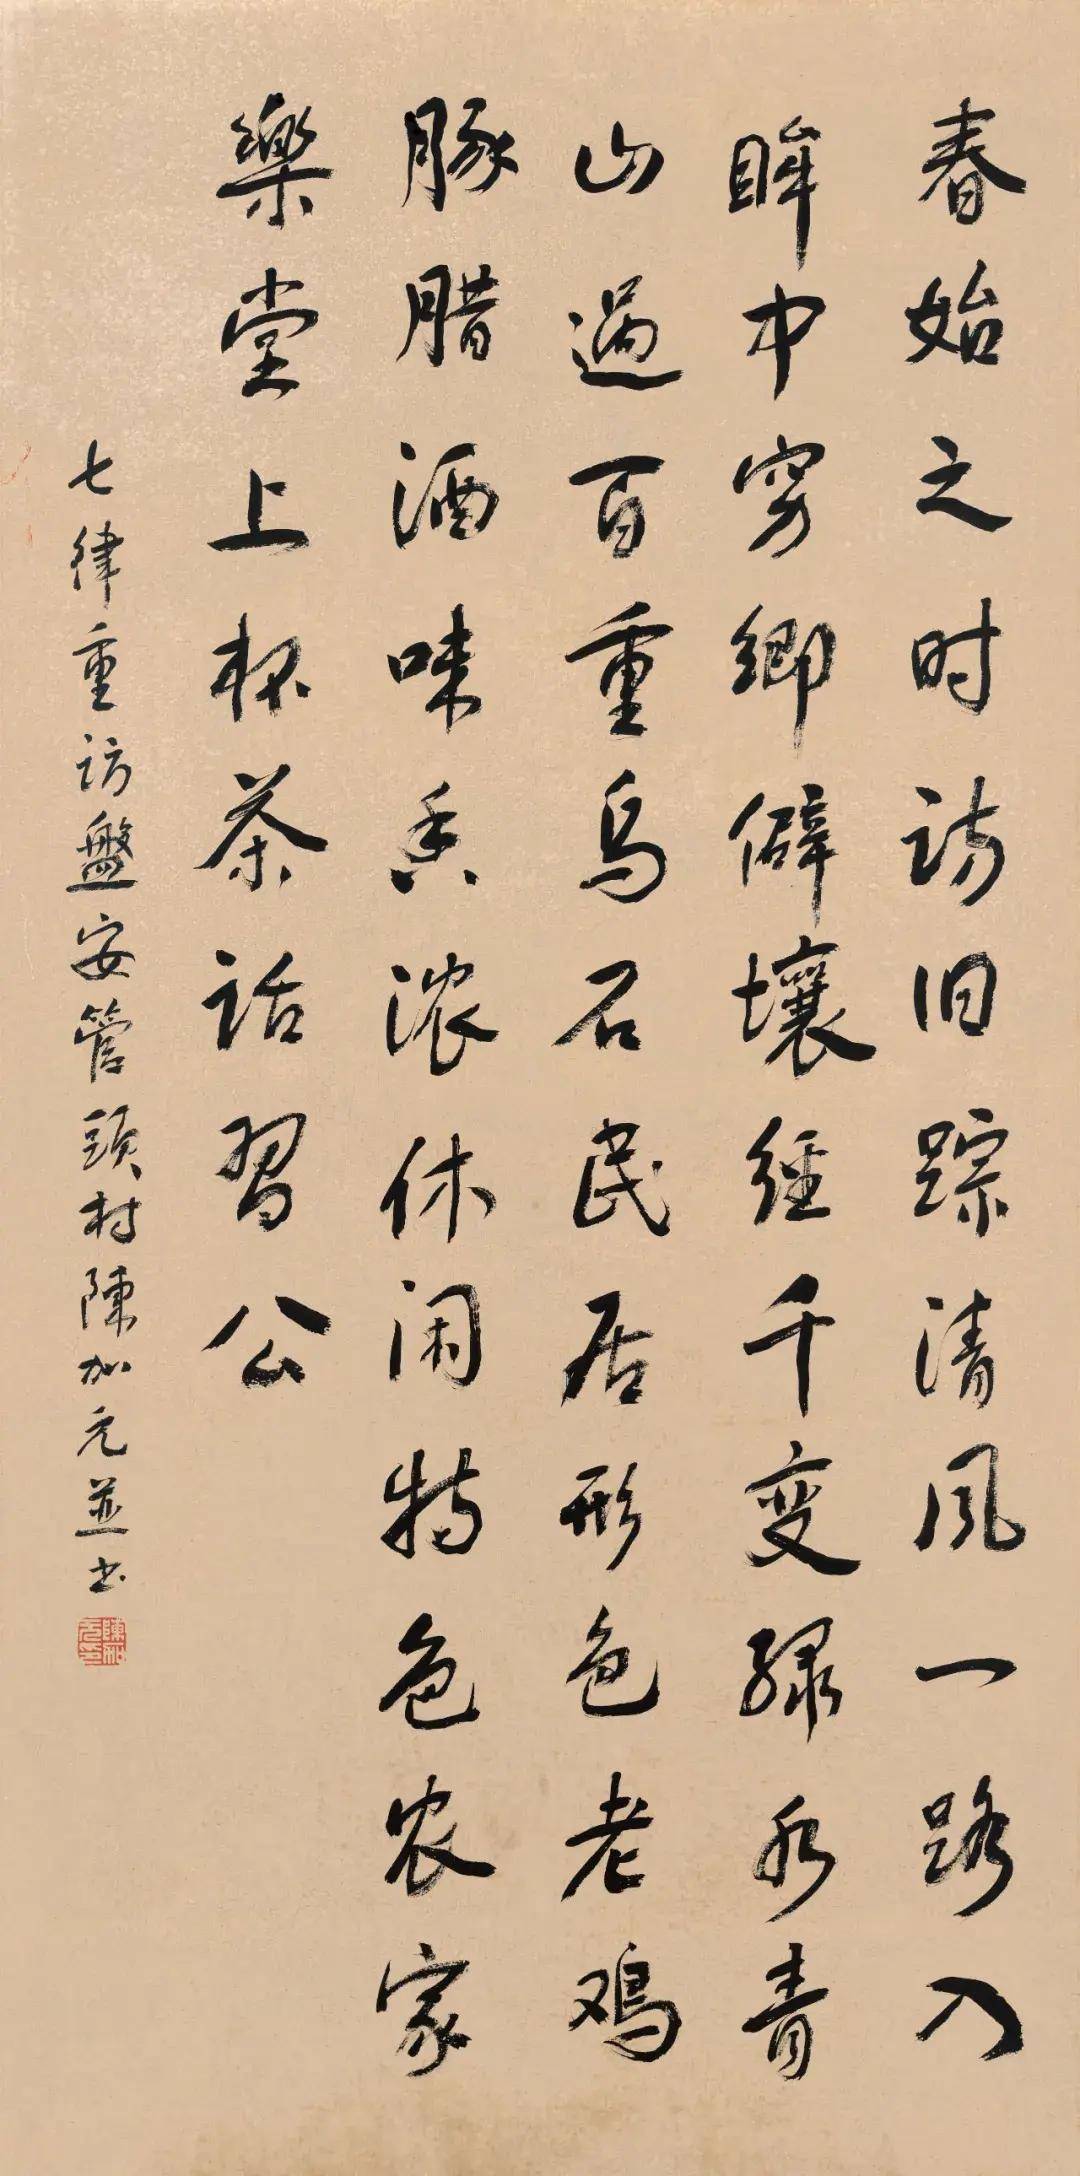 春始之时访旧踪清风一路入
眸中穷鄉僻壤经千变绿水青
山過百重乌石民居形色老鸡
豚腊酒味香浓休闲特色农家
樂堂上杯茶话習公
七律重访盤安管頭村陳加元並书